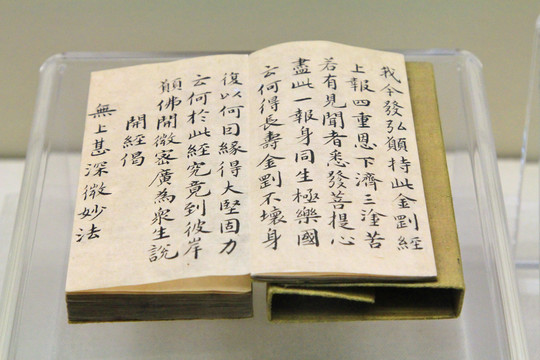 我今發弘願持此金剛經
上報四重恩下濟三塗苦
若有見聞者悉發菩提心
盡此一報身同生極樂國
云何得長壽金剛不壞身
復以何因緣得大堅固力
云何於此經究竟到彼岸
願佛開微密廣為衆生說
開經偈
無上甚深微妙法